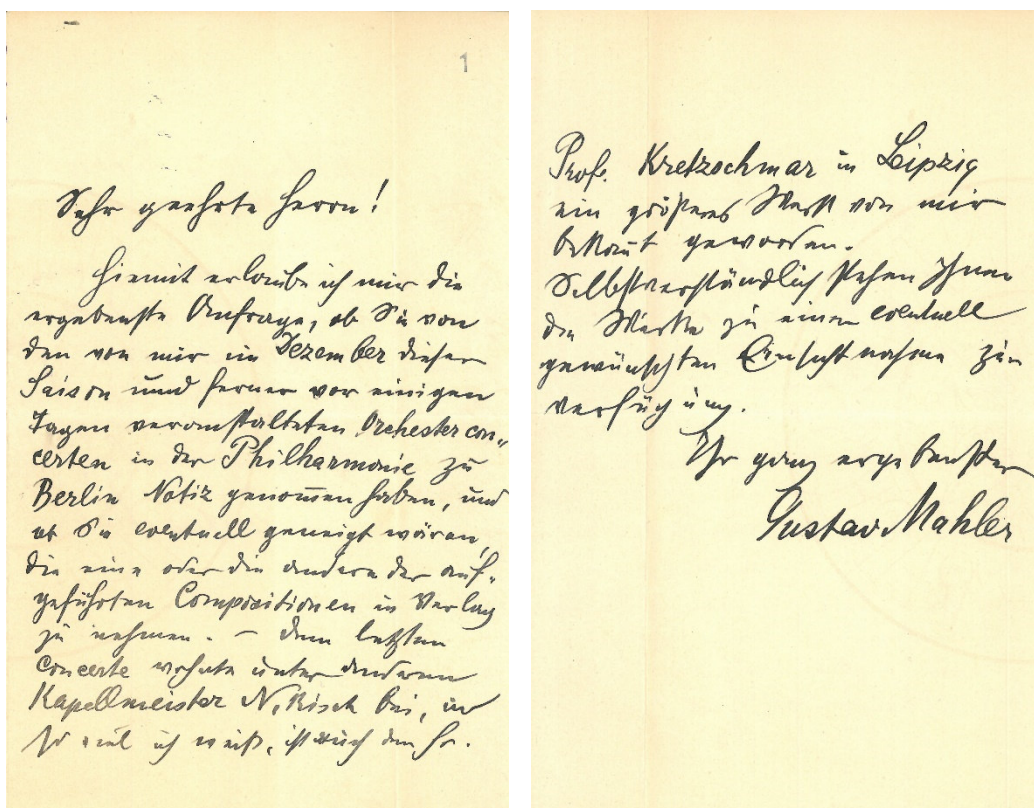 1
Sehr geehrte Herrn!
Hiemit erlaube ich mir die
ergebenste Anfrage, ob Sie von
den von mir im Dezember dieser
Saison und ferner vor einigen
Tagen veranstalteten Orchestercon-
certen in der Philharmonie zu
Berlin Notiz genom̄en haben, und
ob Sie eventuell geneigt wären,
die eine oder die andere der auf-
geführten Compositionen in Verlag
zu nehmen. – Dem letzten
Concerte wohnte unter anderen
Kapellmeister Nikisch bei, u
so viel ich weiß, ist auch dem Hr.
Prof. Kretzschmar in Leipzig
ein größeres Werk von mir
bekan̄t geworden.
Selbstverständlich stehen Ihnen
die Werke zu einer eventuell
gewünschten Einsichtnahme zur
Verfügung.
Ihr ganz ergebenster
Gustav Mahler